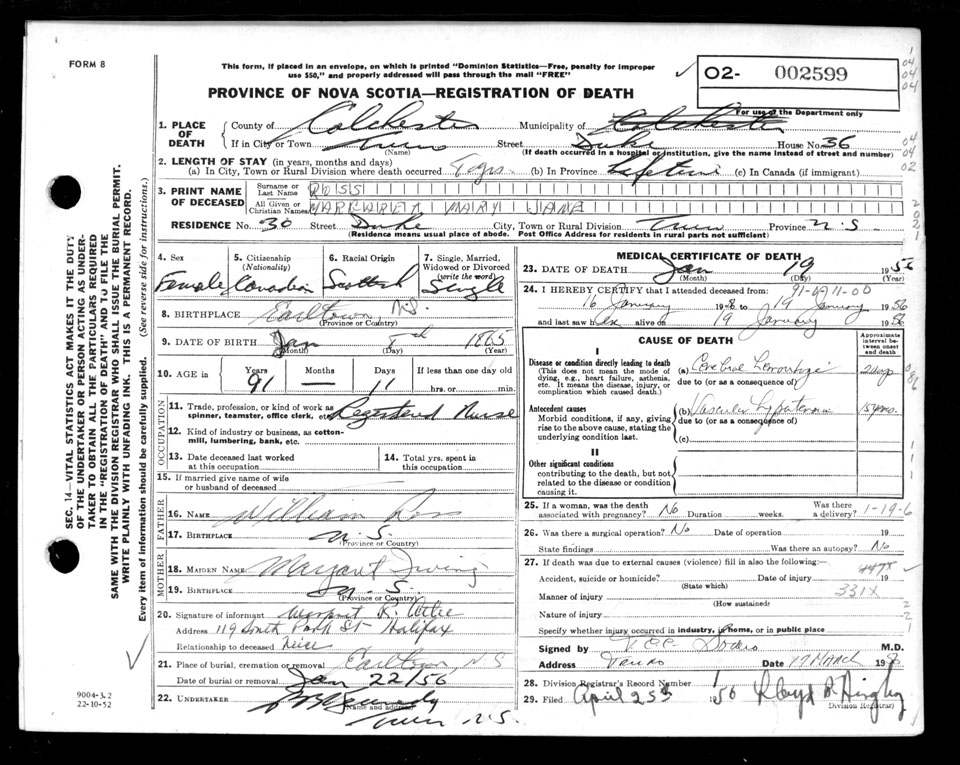 FORM 8
This form, if placed in an envelope, on which is printed "Dominion Statistics—Free, penalty for improper
use $50," and properly addressed will pass through the mail "FREE"
02- 002599
PROVINCE OF NOVA SCOTIA—REGISTRATION OF DEATH
For use of the Department only
1. PLACE OF DEATH
County of Colchester Municipality of Colchester
If in City or Town Truro Street Duke House No. 36
(Name) (If death occurred in a hospital or institution, give the name instead of street and number)
2. LENGTH OF STAY (in years, months and days)
(a) In City, Town or Rural Division where death occurred 7 yrs. (b) In Province Lifetime (c) In Canada (if immigrant)
3. PRINT NAME OF DECEASED
Surname or Last Name ROSS
All Given or Christian Names MARGARET MARY JANE
RESIDENCE No. 36 Street Duke City, Town or Rural Division Truro Province N.S
(Residence means usual place of abode. Post Office Address for residents in rural parts not sufficient)
4. Sex
Female
5. Citizenship
(Nationality)
Canadian
6. Racial Origin
Scottish
7. Single, Married,
Widowed or Divorced
(write the word)
Single
8. BIRTHPLACE Earltown, N.S.
(Province or Country)
9. DATE OF BIRTH Jan 8th 1865
(Month) (Day) (Year)
10. AGE in Years Months Days If less than one day old
91 — 11 hrs. or min.
OCCUPATION
11. Trade, profession, or kind of work as
spinner, teamster, office clerk, etc. Registered Nurse
12. Kind of industry or business, as cotton-
mill, lumbering, bank, etc.
13. Date deceased last worked
at this occupation
14. Total yrs. spent in
this occupation
15. If married give name of wife
or husband of deceased
FATHER
16. NAME William Ross
17. BIRTHPLACE N.S.
(Province or Country)
MOTHER
18. MAIDEN NAME Margaret Irving
19. BIRTHPLACE N.S.
(Province or Country)
20. Signature of informant Margaret R.
Address 119 South Park St Halifax
Relationship to deceased Niece
21. Place of burial, cremation or removal Earltown, N.S
Date of burial or removal Jan 22/56
22. UNDERTAKER Kennedy
(Name and address)
Truro N.S.
MEDICAL CERTIFICATE OF DEATH
23. DATE OF DEATH Jan 19 1956
(Month) (Day) (Year)
91-011-00
24. I HEREBY CERTIFY that I attended deceased from:
16 January to 19 January 1956
and last saw her alive on 19 January 1956
CAUSE OF DEATH
Approximate interval between onset and death
I
Disease or condition directly leading to death
(This does not mean the mode of
dying, e.g., heart failure, asthenia,
etc. It means the disease, injury, or
complication which caused death.)
(a) Cerebral Hemorrhage 2 days
due to (or as a consequence of)
Antecedent causes
Morbid conditions, if any, giving
rise to the above cause, stating the
underlying condition last.
(b) Vascular Hypertension 15 yrs.
due to (or as a consequence of)
(c)
II
Other significant conditions
contributing to the death, but not
related to the disease or condition
causing it.
25. If a woman, was the death
associated with pregnancy? No Duration weeks. Was there
a delivery? 1-19-6
26. Was there a surgical operation? No Date of operation 19
State findings Was there an autopsy? No
27. If death was due to external causes (violence) fill in also the following:
Accident, suicide or homicide? Date of injury 19
(State which)
Manner of injury 331X
(How sustained)
Nature of injury
Specify whether injury occurred in industry, in home, or in public place
Signed by M.D.
Address Truro Date 19 March 1956
28. Division Registrar's Record Number
29. Filed April 25th 1956
Division Registrar)
SEC. 14—VITAL STATISTICS ACT MAKES IT THE DUTY
OF THE UNDERTAKER OR PERSON ACTING AS UNDER-
TAKER TO OBTAIN ALL THE PARTICULARS REQUIRED
IN THE "REGISTRATION OF DEATH" AND TO FILE THE
SAME WITH THE DIVISION REGISTRAR WHO SHALL ISSUE THE BURIAL PERMIT.
WRITE PLAINLY WITH UNFADING INK. THIS IS A PERMANENT RECORD.
Every item of information should be carefully supplied. (See reverse side for instructions.)
9004-3.2
22-10-52